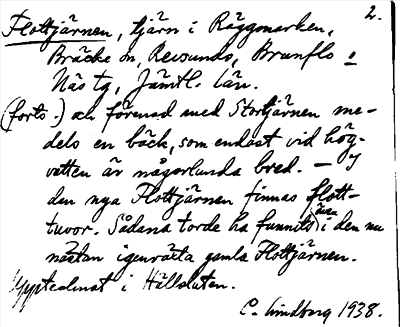 2.
Flottjärnen, tjärn i Räggmarken,
Bräcke sn, Revsunds, Brunflo o
Näs tg, Jämtl. län.
(forts.) och förenad med Stortjärnen me-
dels en bäck, som endast vid hög-
vatten är någorlunda bred. — I
den nya Flottjärnen finnas flott-
tuvor. Sådana torde ha funnits även i den nu
nästan igenväxta gamla Flottjärnen.
Upptecknat i Hällsluten.
C. Lindborg 1938.